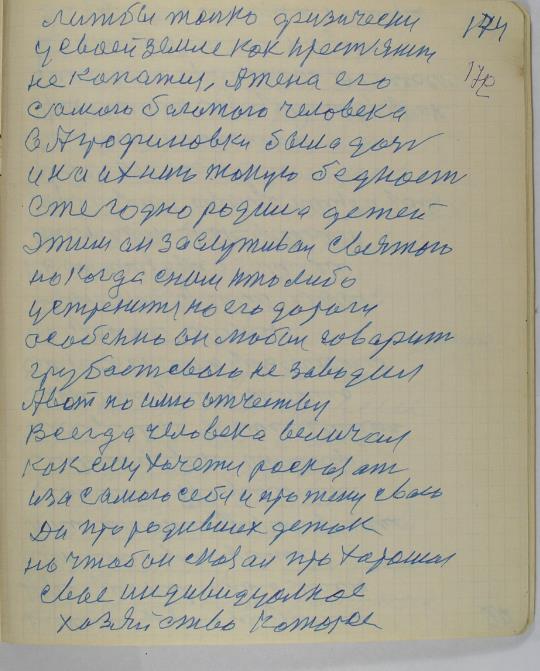 174
лиш бы только физически
170
у своей земле как крестянин
не копатця, Ажена его
самого богатого человека
в Агрофиновки была дочь
и на ихнию такую бедност
ежегодно родила детей
этим он заслуживал святого
но когда с ним кто либо
устренитця по его дороги
особенно он любил говарит
грубост свого не заводил
Авот по имю отчеству
Всегда человека величал
как ему хочетця росказат
иза самого себя и про жену свою
Да про родивших деток
но чтобы он сказал про харошая
свое индивидуалное
хозяйство которое